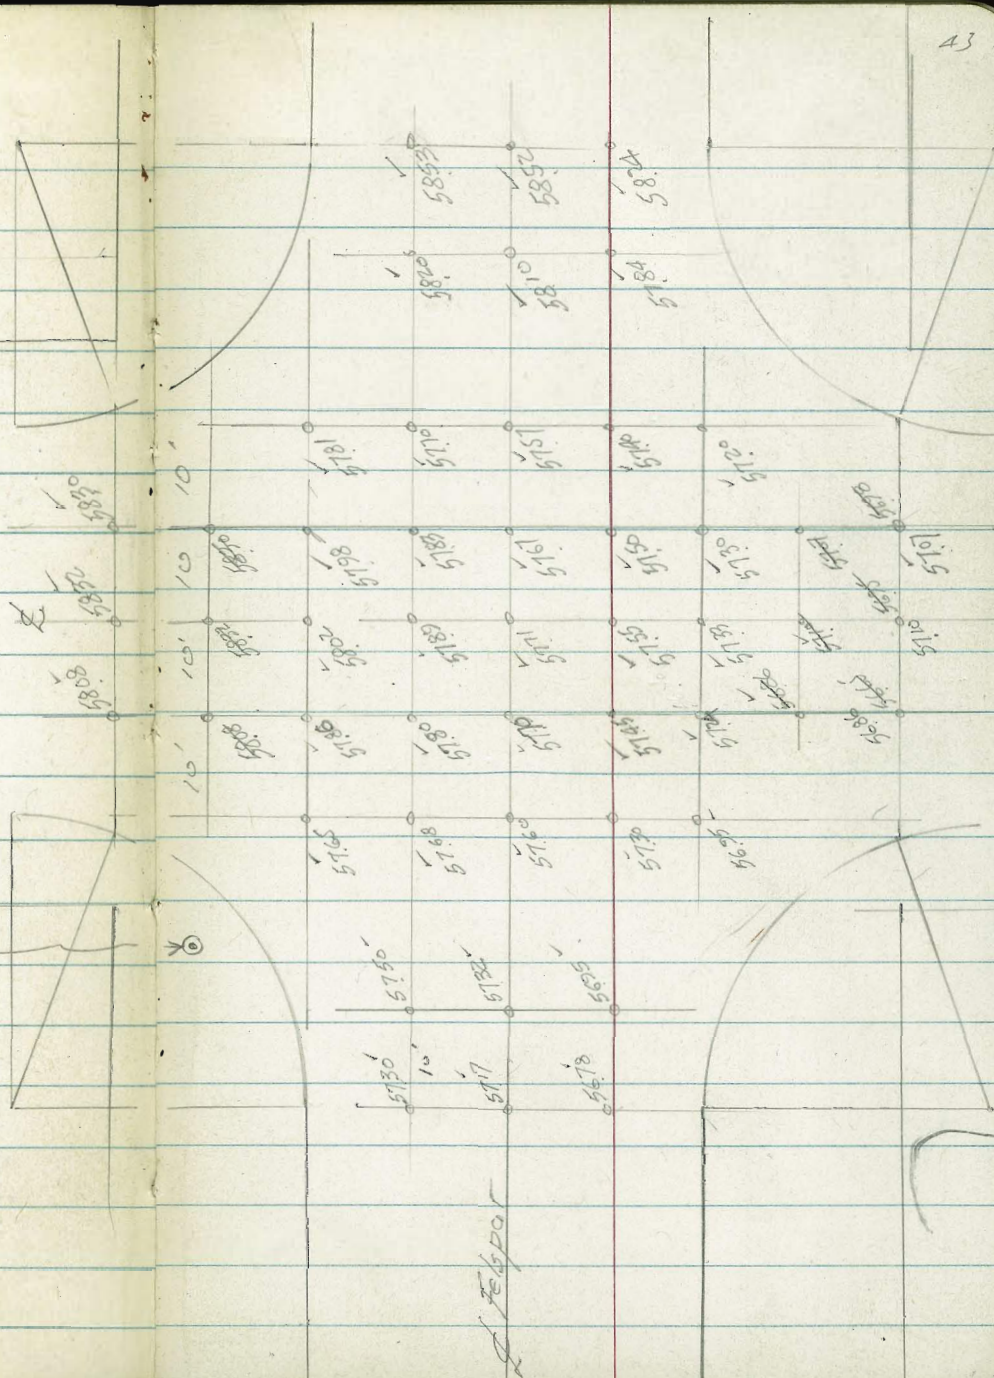 43
58.53 58.52 58.24
58.20 58.10 57.84
10'
57.81 57.70 57.57 57.40 57.20
58.30 57.98 57.83 57.67 57.50 57.30 57.07
10
58.32 58.32 58.02 57.89 57.71 57.55 57.34 57.10
10'
58.08 58.08 57.86 57.80 57.70 57.45 56.86
10'
57.65 57.68 57.60 57.30 56.95
57.50 57.32 56.95
57.30 10' 57.17 56.78
℄ Felspar
℄